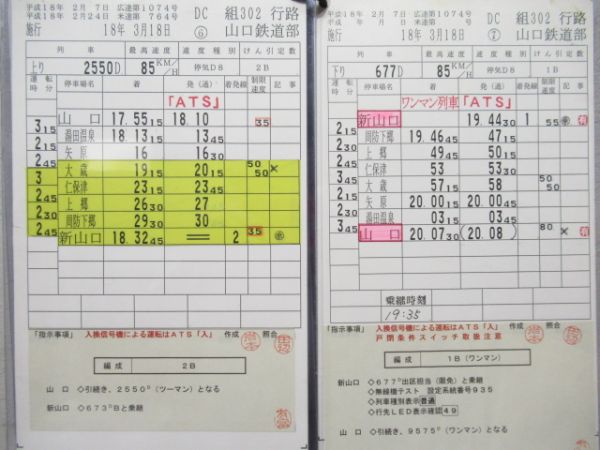 平成18年 2月 7日 広達第1074号
平成18年 2月24日 米達第 764号
施行 18年 3月18日
DC 組302 行路
⑥ 山口鉄道部
列車 最高速度 速度種別 けん引定数
上り 2550D 85KM/H 停気D8 2B
運転時分 停車場名 着 発(通) 着発線 制限速度 記事
「ATS」
山口 17.55 15 18.10 35
3 15 湯田温泉 18.13 15 13 45
2 15 矢原 16 16 30
2 45 大歳 19 15 20 15 50 50 ×
3 仁保津 23 15 23 45
2 45 上郷 26 30 27
2 30 周防下郷 29 30 30
2 45 新山口 18.32 45 = 2 35
「指示事項」 入換信号機による運転はATS「入」 作成 照合
編成
2B
山口 ◇引続き、2550D(ツーマン)となる
新山口 ◇673Dと乗継
平成18年 2月 7日 広達第1074号
平成 年 月 日 米達第 号
施行 18年 3月18日
DC 組302 行路
⑦ 山口鉄道部
列車 最高速度 速度種別 けん引定数
下り 677D 85KM/H 停気D8 1B
運転時分 停車場名 着 発(通) 着発線 制限速度 記事
ワンマン列車「ATS」
新山口 19.44 30 1 55
2 15 周防下郷 19.46 45 47 15
2 30 上郷 49 45 50 15
2 45 仁保津 53 53 30
3 45 大歳 57 15 58 50
2 15 矢原 20.00 15 20.00 45
2 30 湯田温泉 03 15 03 45
3 45 山口 20.07 30 (20.08) 80 ×
乗継時刻
19:35
「指示事項」 入換信号機による運転はATS「入」 作成 照合
戸閉条件スイッチ取扱注意
編成
1B(ワンマン)
新山口 ◇677D出区担当(限免)と乗継
◇無線機テスト 設定系統番号935
◇列車種別表示 普通
◇行先LED表示確認 49
山口 ◇引続き、9575D(ワンマン)となる